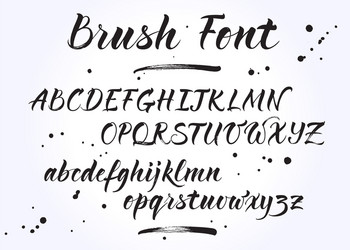 Brush Font
ABCDEFGHIJKLMN
OPQRSTUVWXYZ
abcdefghijklmn
opqrstuvwxyzz